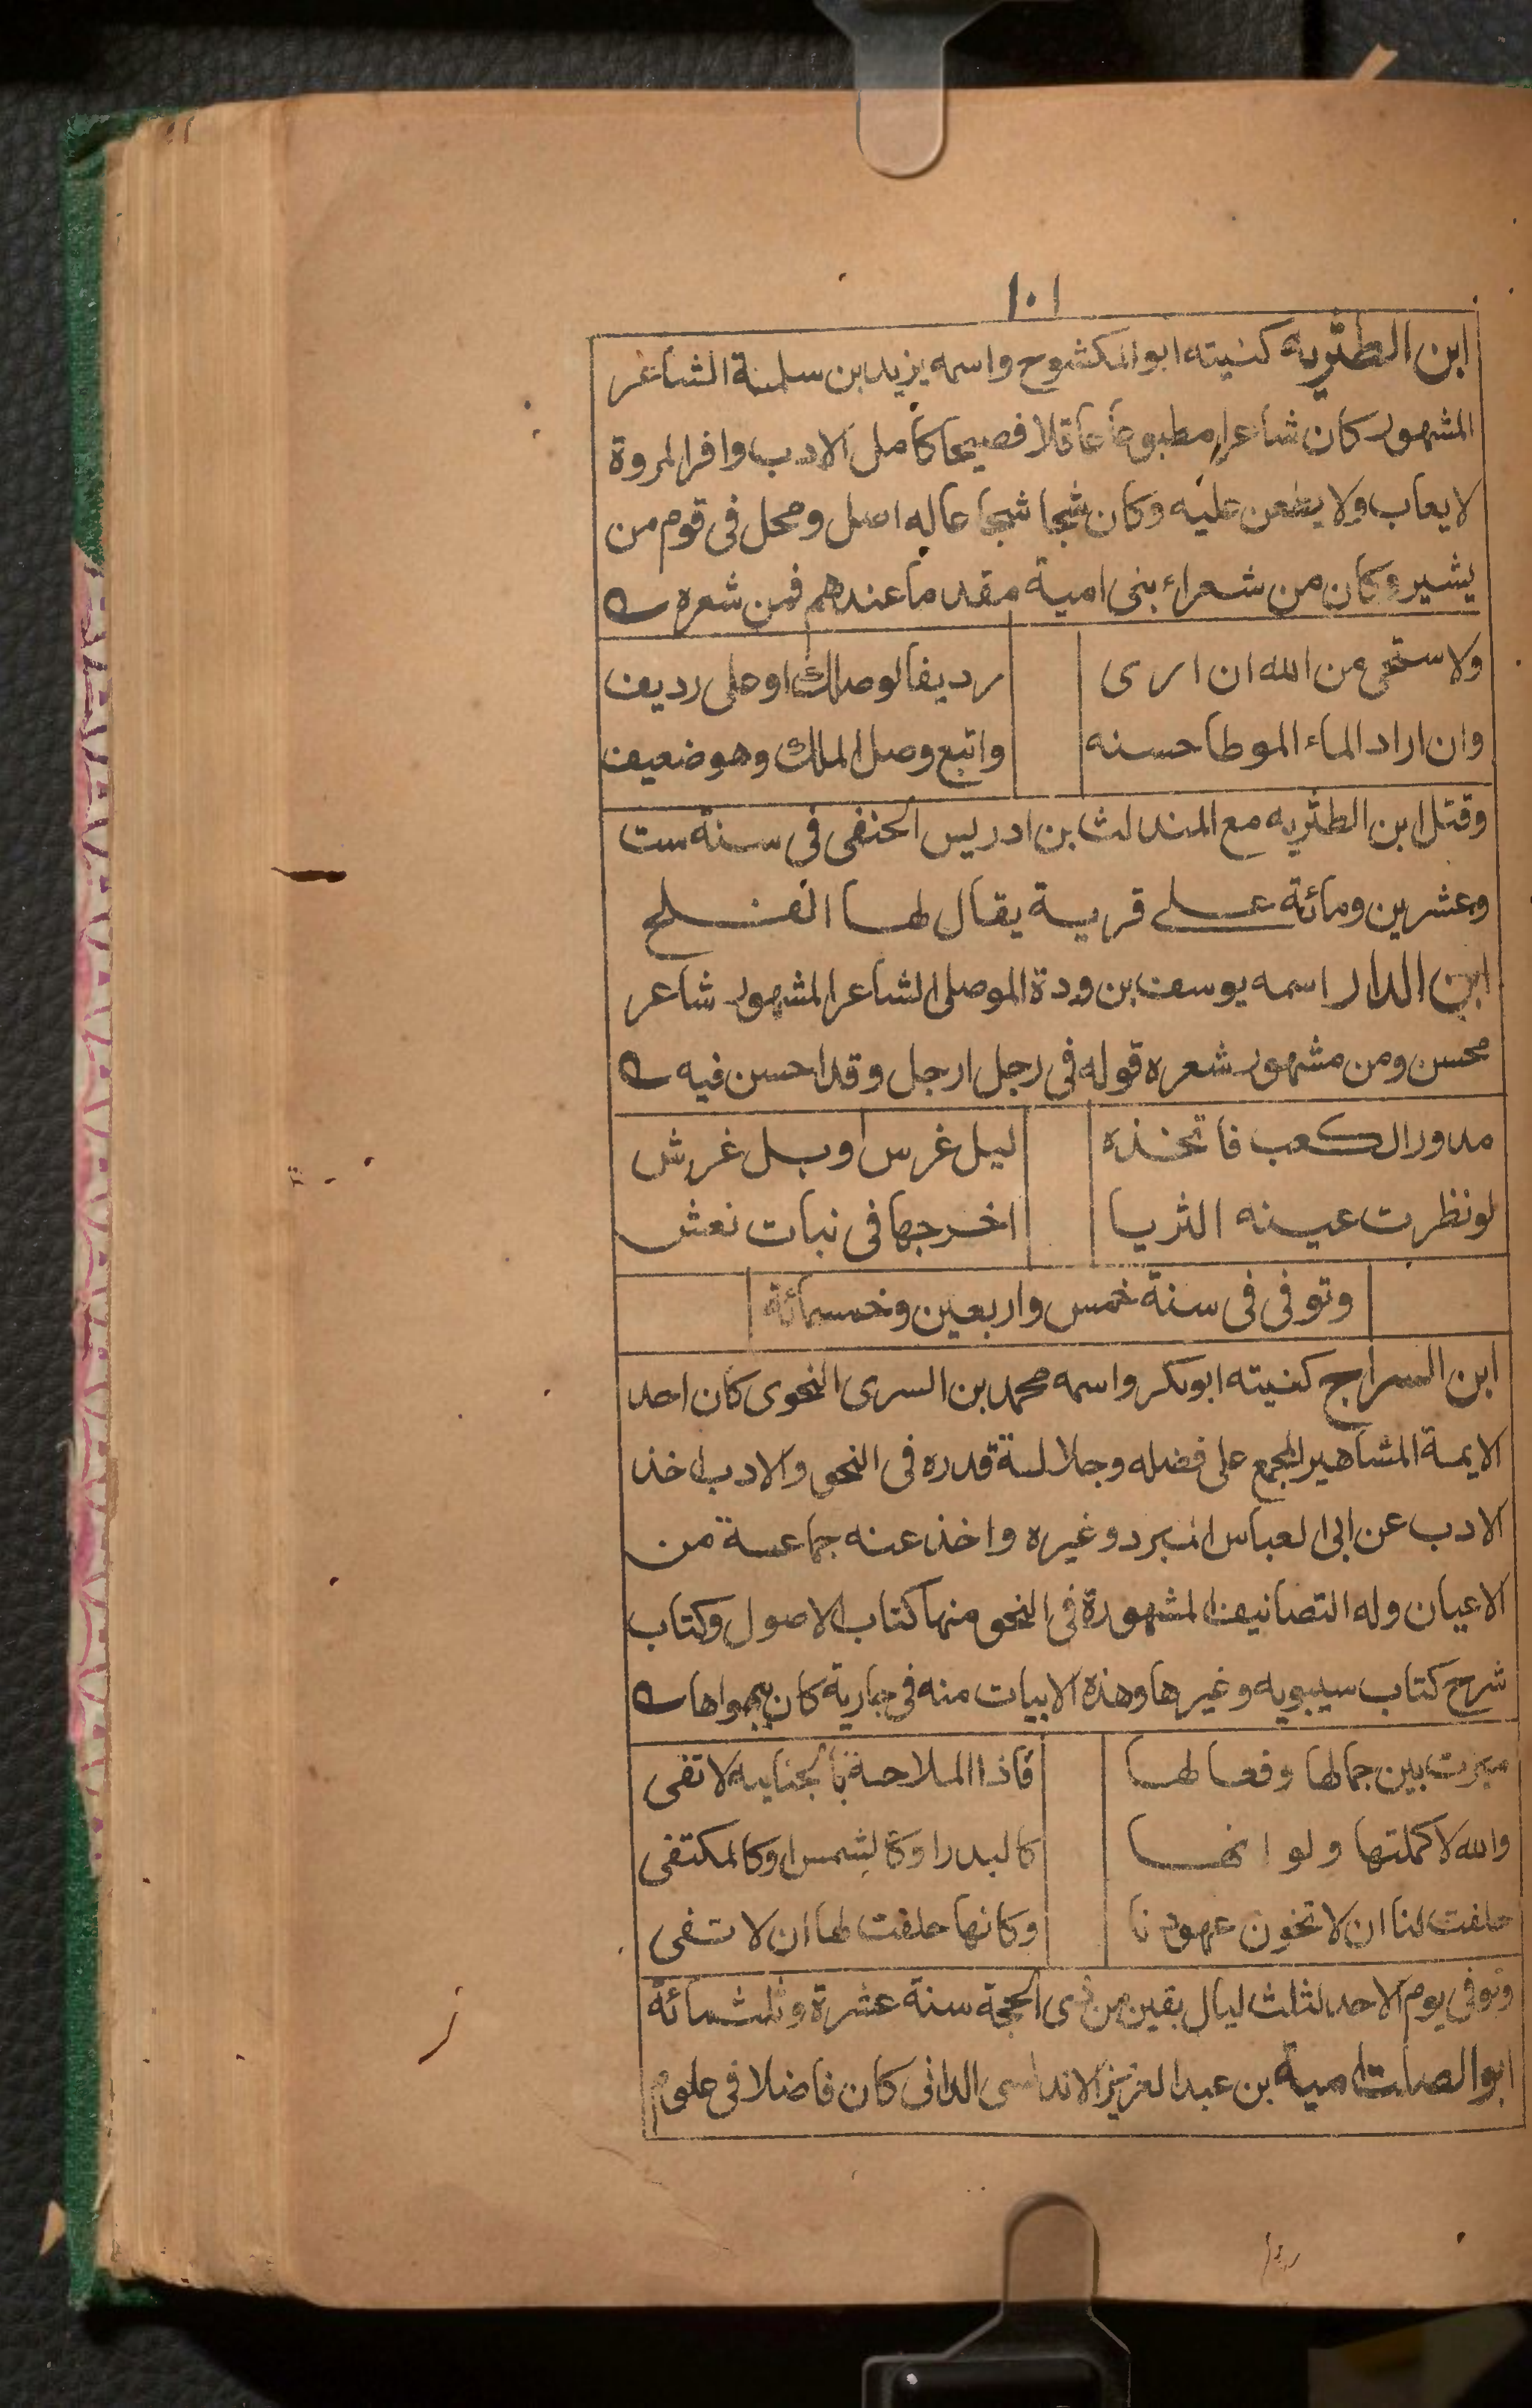 ١٠١
ابن الطثريه كنيته ابو المكشوح واسمه يزيد بن سلمة الشاعر
المشهور كان شاعرا مطبوعا عاقلا فصيحا كامل الادب وافر المروة
لا يعاب ولا يطعن عليه وكان شجا شجا عاله اصل ومحل فى قوم من
يشير وكان من شعراء بنى امية مقدما عندهم فمن شعره
ولا ستحى من الله ان ارى رديفا لوصلك او على رديف
وان اراد الماء الموطا حسنه واتبع وصل الملك وهو ضعيف
وقتل ابن الطثريه مع المندلث بن ادريس الحنفى فى سنة ست
وعشرين ومائة على قرية يقال لها الفلج
ابن الدار اسمه يوسف بن ودة الموصلى الشاعر المشهور شاعر
محسن ومن مشهور شعره قوله فى رجل ارجل وقد احسن فيه
مدور الكعب فاتخذه ليل غرس اوبل غرش
لو نظرت عينه الثريا اخرجها فى نبات نعش
وتوفى فى سنة خمس واربعين وخسمائة
ابن السراج كنيته ابوبكر واسمه محمد بن السرى النحوى كان احد
الايمة المشاهير المجمع على فضله وجلالة قدره فى النحو والادب اخذ
الادب عن ابى العباس المبرد وغيره واخذ عنه جماعة من
الاعيان وله التصانيف المشهورة فى النحو منها كتاب الاصول وكتاب
شرح كتاب سيبويه وغيرها وهذه الابيات منه فى جارية كان يهواها
ميزت بين جمالها وفعالها فاذا الملاحة بالجنايه لا تفى
والله لا كملتها ولو انها كالبدر او كالشمس او كالمكتفى
حلفت لنا ان لا تخون عهودنا وكانها حلفت لها ان لا تفى
وتوفى يوم الاحد لثلث ليال بقين من ذى الحجة سنة عشرة وثلثمائة
ابوالصلت امية بن عبد العزيز الاندلسى الدانى كان فاضلا فى علوم